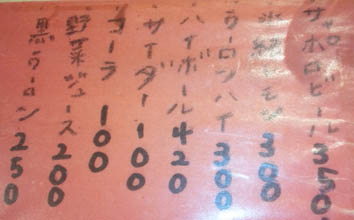 サッポロビール 350
300
ウーロンハイ 300
ハイボール 420
サイダー 100
コーラ 100
野菜ジュース 200
黒ウーロン 250